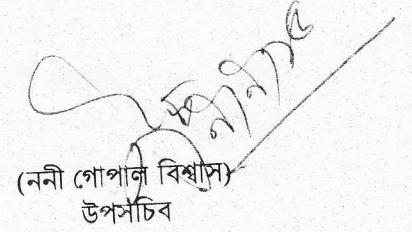 (ননী গোপাল বিশ্বাস)
উপসচিব